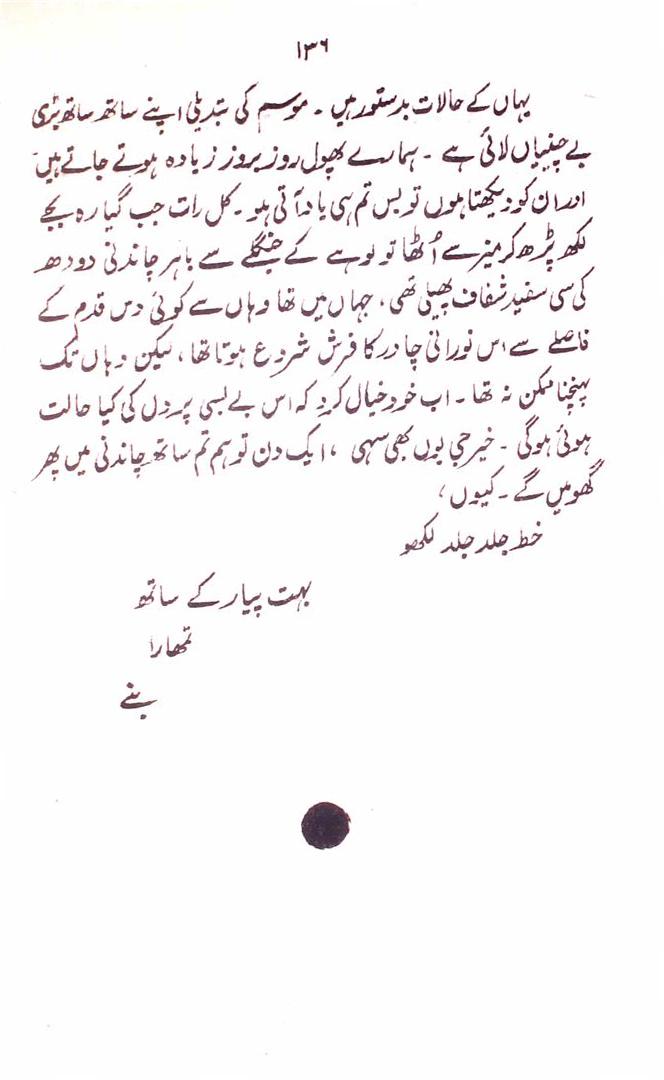 ۱۳۶
یہاں کے حالات بدستور ہیں ۔ موسم کی تبدیلی اپنے ساتھ ساتھ بڑی
بے چینیاں لائی ہے ۔ ہمارے پھول روز بروز زیادہ ہوتے جاتے ہیں
اور ان کو دیکھتا ہوں تو بس تم ہی یاد آتی ہو ۔ کل رات جب گیارہ بجے
لکھ پڑھ کر میز سے اُٹھا تو لوہے کے جنگلے سے باہر چاندنی دودھ
کی سی سفید شفاف پھیلی تھی ، جہاں میں تھا وہاں سے کوئی دس قدم کے
فاصلے سے اس نورانی چادر کا فرش شروع ہوتا تھا ، لیکن وہاں تک
پہنچنا ممکن نہ تھا ۔ اب خود خیال کرو کہ اس بے بسی پر دل کی کیا حالت
ہوئی ہوگی ۔ خیر جی یوں بھی سہی ، ایک دن تو ہم تم ساتھ چاندنی میں پھر
گھومیں گے ۔ کیوں ،
خط جلد جلد لکھو
بہت پیار کے ساتھ
تمھارا
بنے